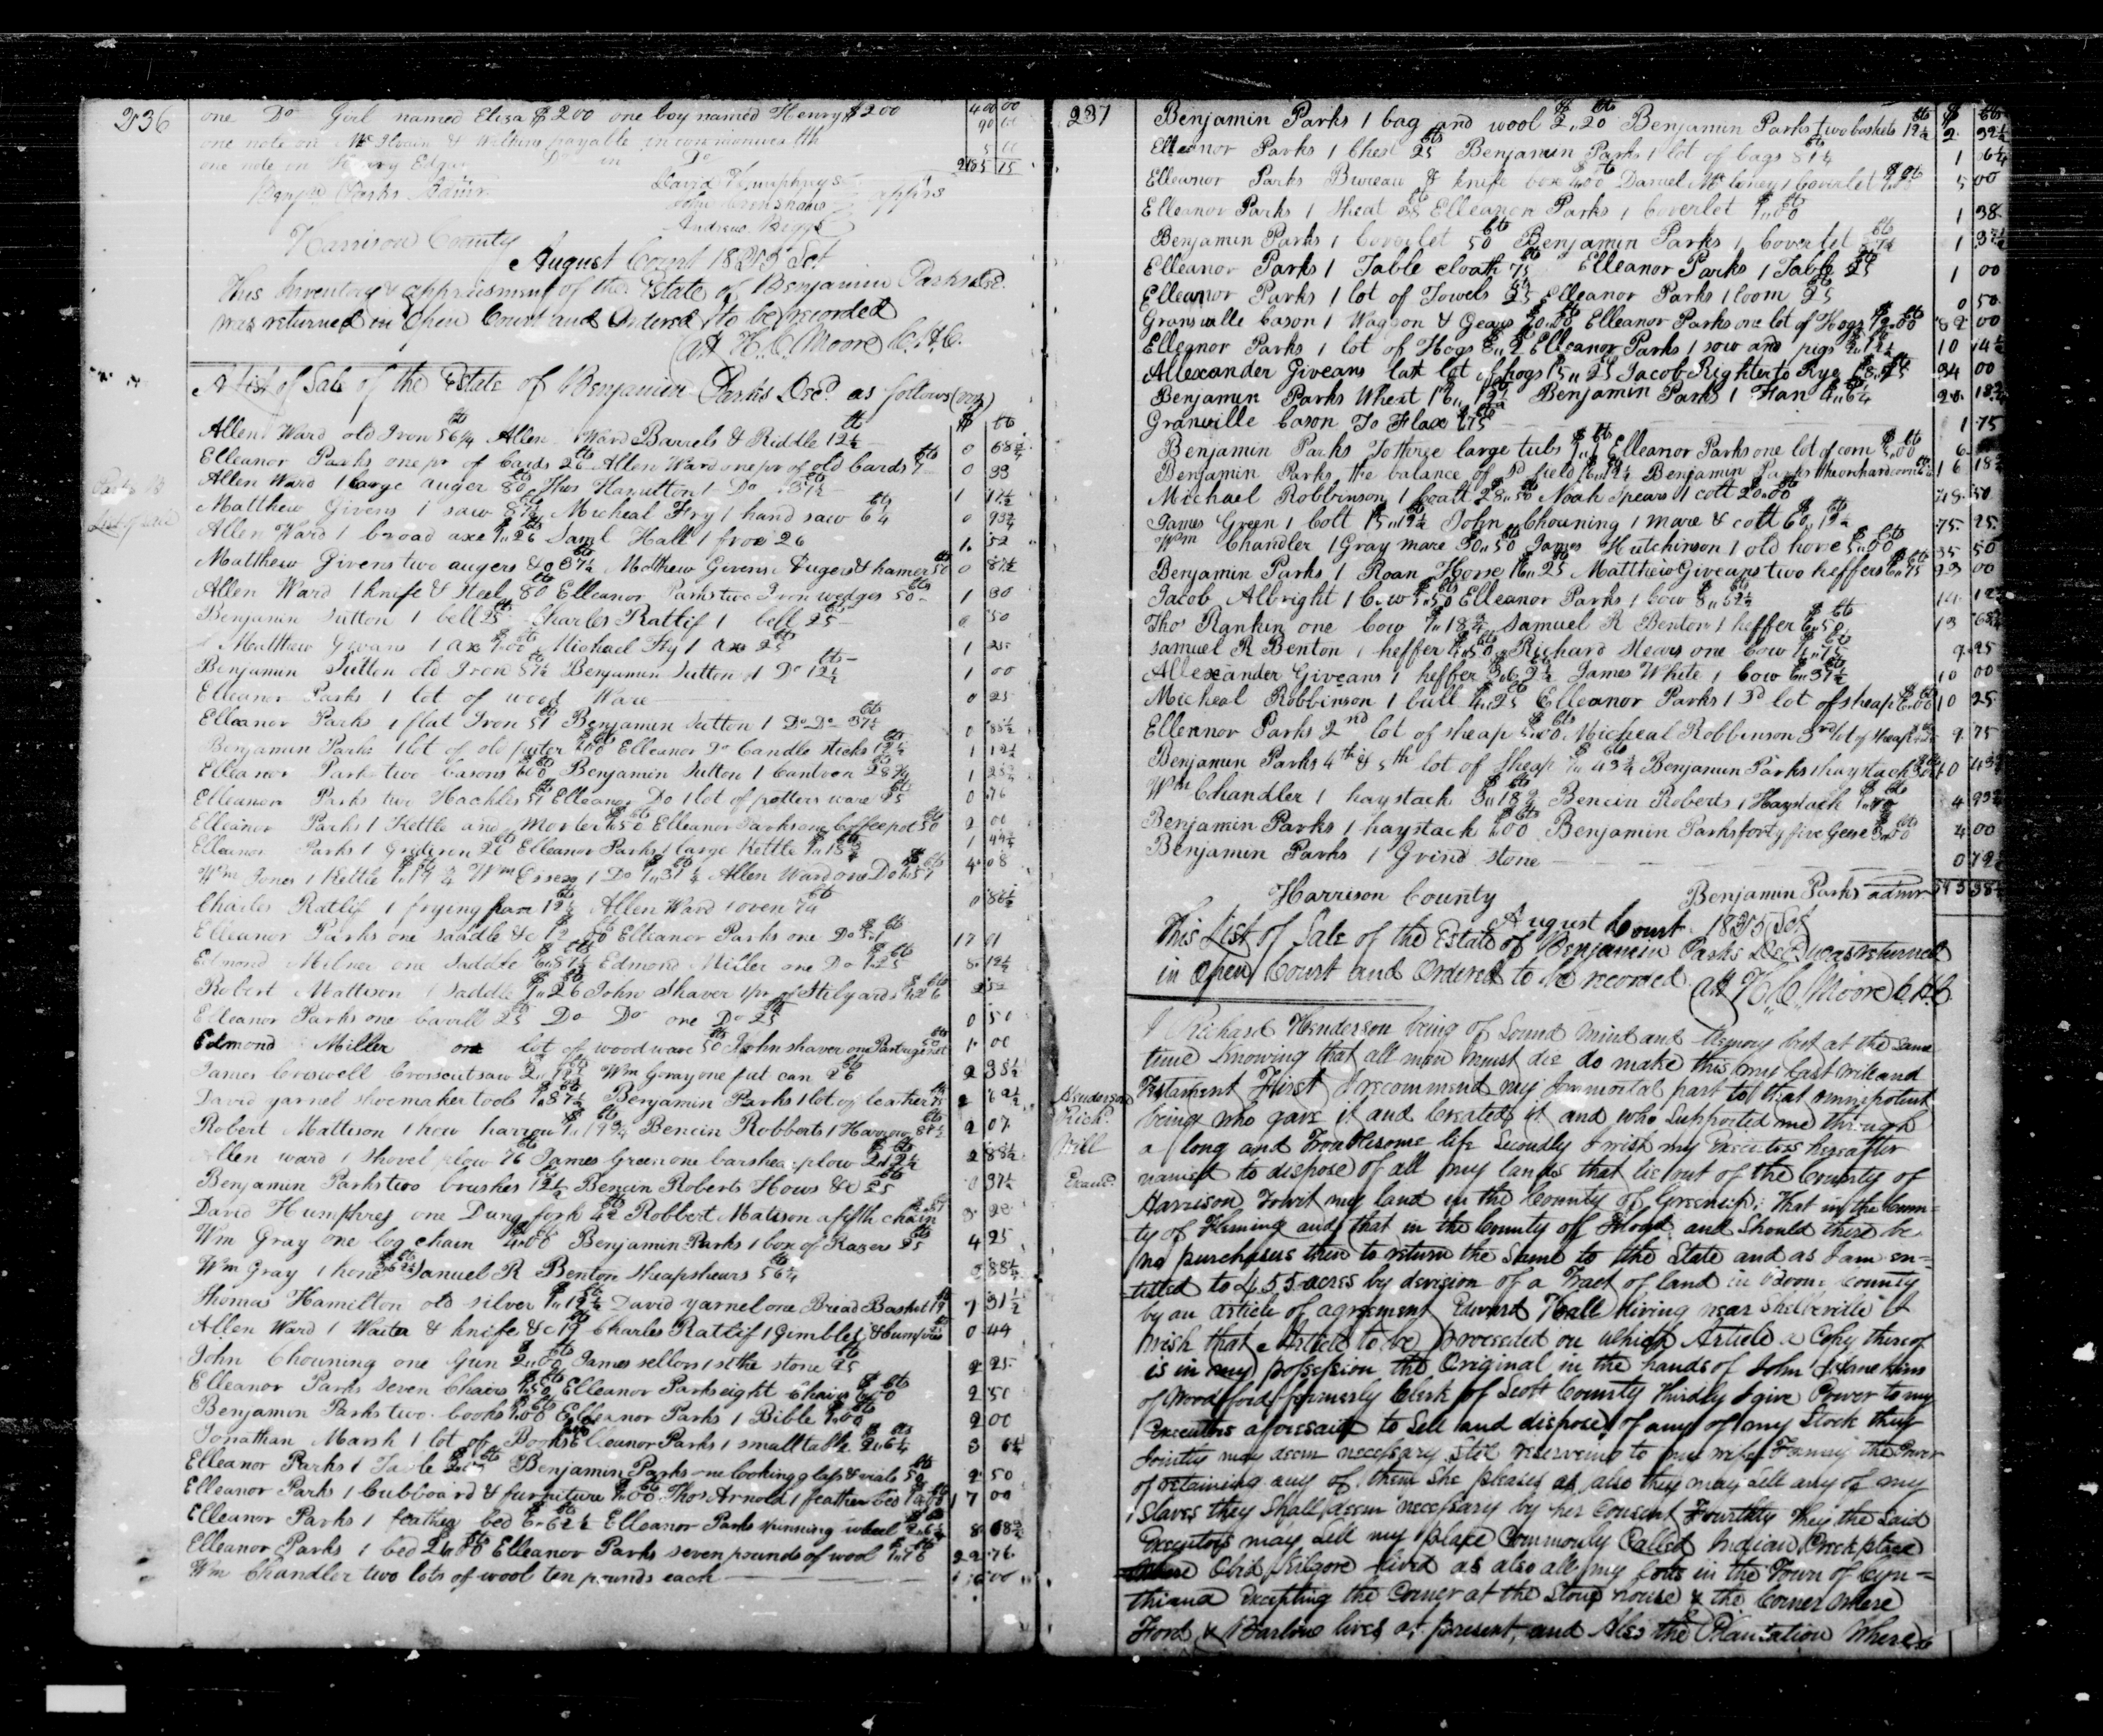 236
one Do Girl named Eliza $200 one boy named Henry $200 400 00
one note on & Wilkins payable in commonwealth 90
one note on Edgar Do in Do 5
2185 15
Benjn Parks Admr David Humphreys
John Crenshaw apprs
Andrew Biggs
Harrison County
August Court 1825 Sct
This Inventory & appraisment of the Estate of Benjamin Parks decd
was returned in Open Court and Ordered to be recorded
att H. C. Moore C.H.C.
A List of Sale of the Estate of Benjamin Parks Decd as follows
Allen Ward old Iron 56¼ Allen Ward Barrels & Riddle 12½ 0 68¾
Elleanor Parks one pr of Cards 26 Allen Ward one pr of old Cards 7 0 33
Allen Ward 1 large auger 80 Thos Hamilton 1 Do 37½ 1 17½
Matthew Givens 1 saw 87½ Micheal Fry 1 hand saw 6¼ 0 93¾
Allen Ward 1 broad axe 1.26 Saml Hall 1 froe 26 1. 52
Matthew Givens two augers &c 37½ Matthew Givens Augers & hamer 50 0 87½
Allen Ward 1 knife & steel 80 Elleanor Parks two Iron wedges 50 1 30
Benjamin Sutton 1 bell 25 Charles Ratlif 1 bell 25 0 50
Matthew Givens 1 ax 1.00 Michael Fry 1 ax 25 1 25
Benjamin Sutton old Iron 87½ Benjamin Sutton 1 Do 12½ 1 00
Elleanor Parks 1 lot of wood Ware 0 25
Elleanor Parks 1 flat Iron 51 Benjamin Sutton 1 Do Do 37½ 0 88½
Benjamin Parks 1 lot of old puter 1.00 Elleanor Do Candle sticks 12½ 1 12½
Elleanor Parks two basons 1.00 Benjamin Sutton 1 Canteen 28¾ 1 28¾
Elleanor Parks two Hackles 51 Elleanor Do 1 lot of potters ware 25 0 76
Elleanor Parks 1 Kettle and Morter 1.50 Elleanor Parks one Coffee pot 50 2 00
Elleanor Parks 1 Grideren 26 Elleanor Parks 1 large Kettle 1.18¾ 1 44¾
Wm Jones 1 Kettle Wm Essex 1 Do 1.31¼ Allen Ward one Do 1.57 4 08
Charles Ratlif 1 frying pan 12½ Allen Ward 1 oven 74 0 86½
Elleanor Parks one saddle &c 12.00 Elleanor Parks one Do 5.1 17 01
Edmond Milner one Saddle 6.87½ Edmond Miller one Do 1.25 8. 12½
Robert Mattison 1 saddle 1.26 John Shaver 1 pr of Stilyards 1.26 2 52
Elleanor Parks one barill 25 Do Do one Do 25 0 50
Edmond Miller one lot of wood ware 50 John shaver one Partrige net 50 1. 00
James Criswell Crosscut saw 2.12½ Wm Gray one fut can 26 2 38½
David yarnel shoemaker tools 1.87½ Benjamin Parks 1 lot of leather 75 2 62½
Robert Mattison 1 new harrow 1.19¾ Bencin Robberts 1 Harrow 87½ 2 07
Allen ward 1 Shovel plow 76 James Green one barshear plow 2.12½ 2 88½
Benjamin Parks two brushes 12½ Bencin Roberts Hows &c 25 0 37½
David Humphrey one Dung fork Robbert Matison a fifth chain 3.
Wm Gray one log chain 4.00 Benjamin Parks 1 box of Razors 25 4 25
Wm Gray 1 hone Samuel R Benton Sheapshears 56¼ 88¼
Thomas Hamilton old silver 1.12½ David yarnel one Bread Basket 19 1 31½
Allen Ward 1 Waiter & knife &c 19 Charles Ratlif 1 Gimblet & 25 0 44
John Chouning one Gun 2.00 James sellors 1 sithe stone 25 2 25
Elleanor Parks Seven Chairs 1.50 Elleanor Parks eight Chairs 1.00 2 50
Benjamin Parks two books 1.00 Elleanor Parks 1 Bible 1.00 2 00
Jonathan Marsh 1 lot of Books Elleanor Parks 1 small table 2.6¼ 3 6¼
Elleanor Parks 1 Table 2.00 Benjamin Parks one looking glass & vials 50 2 50
Elleanor Parks 1 Cubboard & furniture Thos Arnold 1 feather bed 17 00
Elleanor Parks 1 feather bed 6.62½ Elleanor Parks spinning wheel 2.6¼ 8 68¾
Elleanor Parks 1 bed 21.00 Elleanor Parks seven pounds of wool 1.76 22 76
Wm Chandler two lots of wool ten pounds each 00
237
Benjamin Parks 1 bag and wool 2.20 Benjamin Parks two baskets 12½ 2 32½
Elleanor Parks 1 Chest 25 Benjamin Parks 1 lot of bags 81¼ 1 06¼
Elleanor Parks Bureau & knife box 4.00 Daniel 1 Coverlet 1.00 5 00
Elleanor Parks 1 Sheat 38 Elleanor Parks 1 Coverlet 1.00 1 38
Benjamin Parks 1 Coverlet 50 Benjamin Parks 1 Coverlet 87½ 1 37½
Elleanor Parks 1 Table cloath 75 Elleanor Parks 1 Table 25 1 00
Elleanor Parks 1 lot of Towels 25 Elleanor Parks 1 loom 25 0 50
Granville Cason 1 Waggon & Gears Elleanor Parks one lot of Hogs 12.00 82 00
Elleanor Parks 1 lot of Hogs 8.2 Elleanor Parks 1 sow and pigs 2.12½ 10 14½
Allexander Giveans last lot of hogs 15.25 Jacob Righter to Rye 18.75 34 00
Benjamin Parks Wheat 16.12½ Benjamin Parks 1 Fan 4.6¼ 20 18¾
Granville Cason To Flax 1.75 1 75
Benjamin Parks To three large tubs 1. Elleanor Parks one lot of corn 5.00 6
Benjamin Parks the balance of sd field Benjamin Parks the orchard corn 16 18¾
Michael Robbinson 1 Coalt 28.50 Noah Spears 1 colt 20.00 48 50
James Green 1 Colt 15.12½ John Chouning 1 mare & colt 60.12½ 75 25
Wm Chandler 1 Gray mare 30.50 James Hutchinson 1 old horse 5.00 35 50
Benjamin Parks 1 Roan Horse 16.25 Matthew Giveans two heffers 6.75 23 00
Jacob Albright 1 Cow 5.50 Elleanor Parks 1 Cow 8.62½ 14 12½
Thos Rankin one Cow 7.18¾ Samuel R Benton 1 heffer 6.50 13 68¾
Samuel R Benton 1 heffer 4.50 Richard Mears one Cow 4.75 9 25
Allexander Giveans 1 heffer 3.62½ James White 1 Cow 6.37½ 10 00
Micheal Robbinson 1 bull 4.25 Elleanor Parks 1 lot of sheap 6.00 10 25
Elleanor Parks 2nd lot of sheap 5.00 Micheal Robbinson 3rd lot of sheap 9 75
Benjamin Parks 4th & 5th lot of Sheap 7.43¾ Benjamin Parks 1 haystack 3.00 10 43¾
Wm Chandler 1 haystack 3.18¾ Bencin Roberts 1 Haystack 4 93¾
Benjamin Parks 1 haystack 1.00 Benjamin Parks forty five Geese 3.00 4 00
Benjamin Parks 1 Grind stone 0 12½
Harrison County Benjamin Parks admr
August Court 1825 Sct
This List of Sale of the Estate of Benjamin Parks Decd was returned
in Open Court and Ordered to be recorded att H. C. Moore C.H.C.
I Richard Henderson being of Sound mind and Memory but at the same
time knowing that all men must die do make this my last will and
Testament First I recommend my Immortal part to that omnipotent
Henderson
Richd
Will
Examd
being who gave it and Created it and who Supported me through
a long and Troublesome life Secondly I wish my Executors hereafter
named to dispose of all my lands that lie out of the County of
Harrison Towit my land in the County of Greenup; That in the Coun-
ty of Fleming and that in the County off Floyd and Should there be
no purchasers then to return the Same to the State and as I am en-
titled to 455 acres by devision of a Tract of land in Boone County
by an article of agreement Edward Hall living near Shelbeville I
wish that Article to be proceeded on which Article a Copy thereof
is in my possession the Original in the hands of John
of Woodford formerly Clerk of Scott County Thirdly I give Power to my
Executors aforesaid to Sell and dispose of any of my Stock they
Jointly may deem necessary Still reserveing to my wife the Power
of retaining any of them She pleases as also they may sell any of my
Slaves they Shall deem necessary by her Consent Fourthly they the Said
Executors may sell my place Commonly Called Indian Creek place
where Obid Kilgore lived as also all my Lots in the Town of Cyn-
thiana Excepting the Corner at the Stone house & the Corner where
Ford & lives at present, and Also the Plantation Where